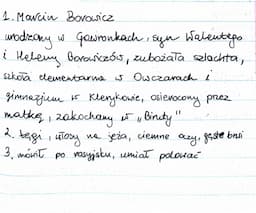 1. Marcin Borowicz
urodzony w Gawronkach, syn Walentego
i Heleny Borowiczów, zubożała szlachta,
szkoła elementarna w Owczarach i
gimnazjum w Klerykowie, osierocony przez
matkę, zakochany w "Birucie"
2. tęgi, włosy na jeża, ciemne oczy, gęste brwi
3. mówił po rosyjsku, umiał polować